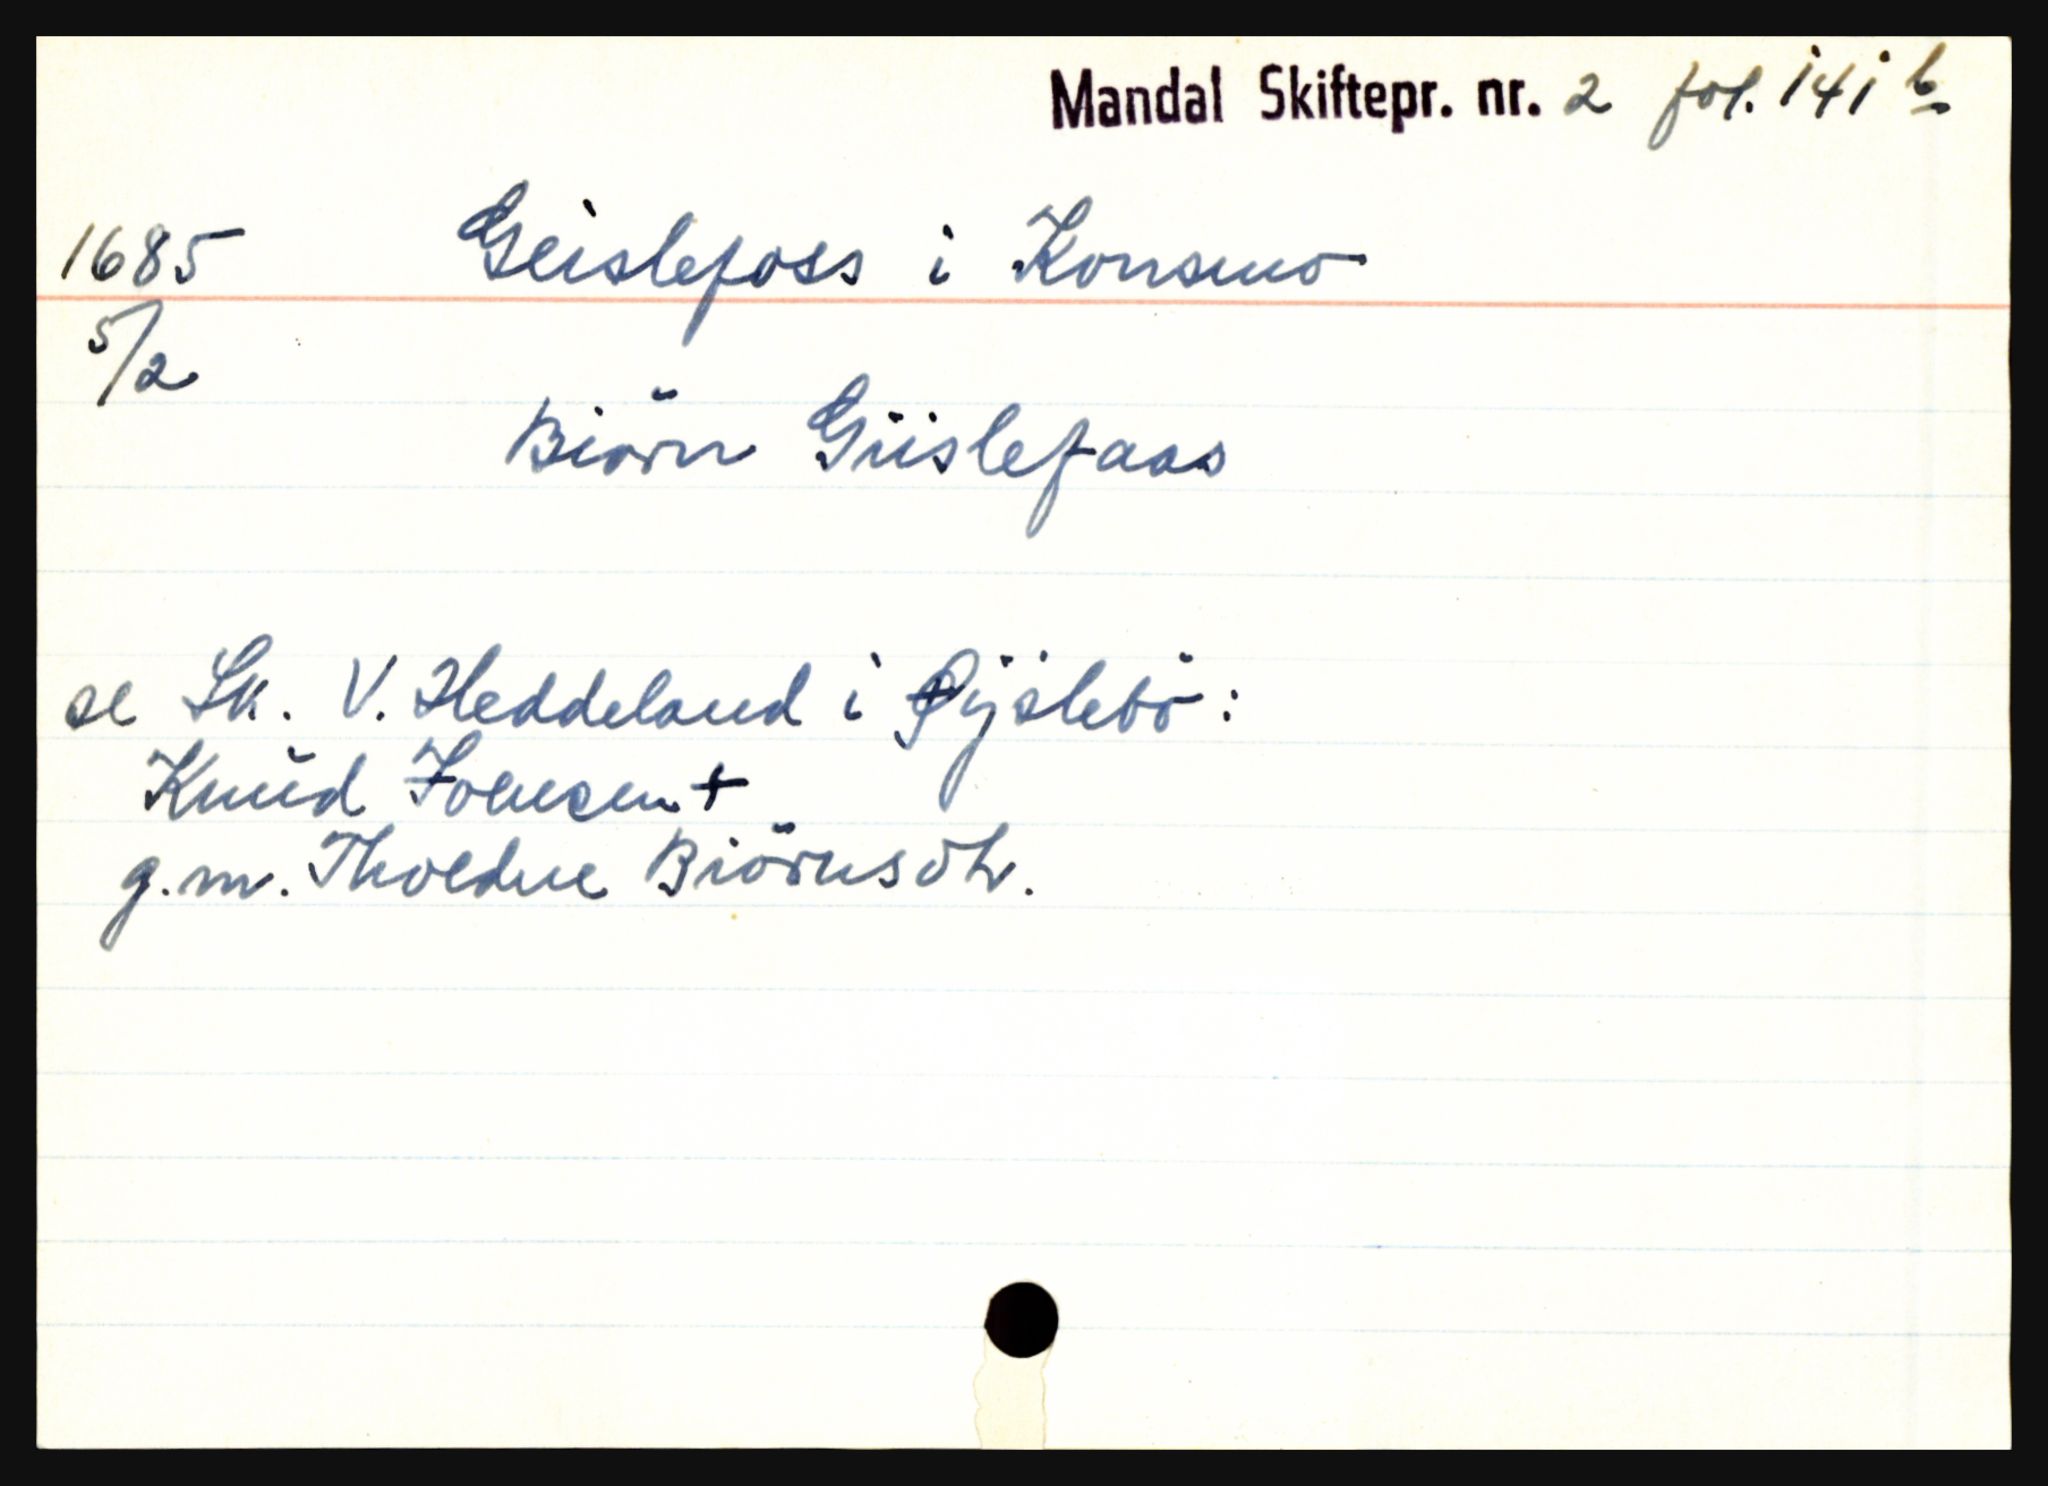 Mandal Skiftepr. nr. 2 fol. 141 b
1685 Geislefoss i Konsmo
5/2
Biörn Giislefaas
se Sk. V. Heddeland i Øÿslebö:
Knud +
g.m. Biörnsdtr.